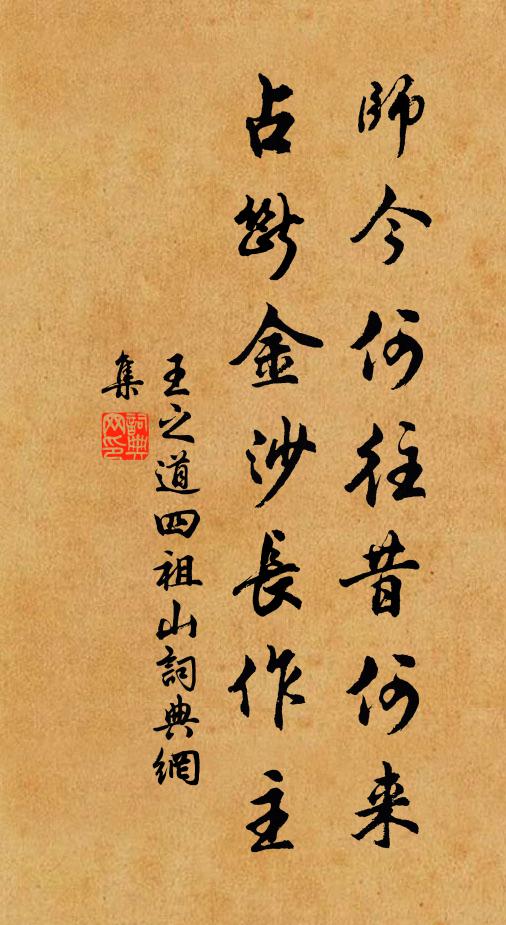 師今何往昔何来
占断金沙長作主
王之道四祖山詞典網
集
詞典网印